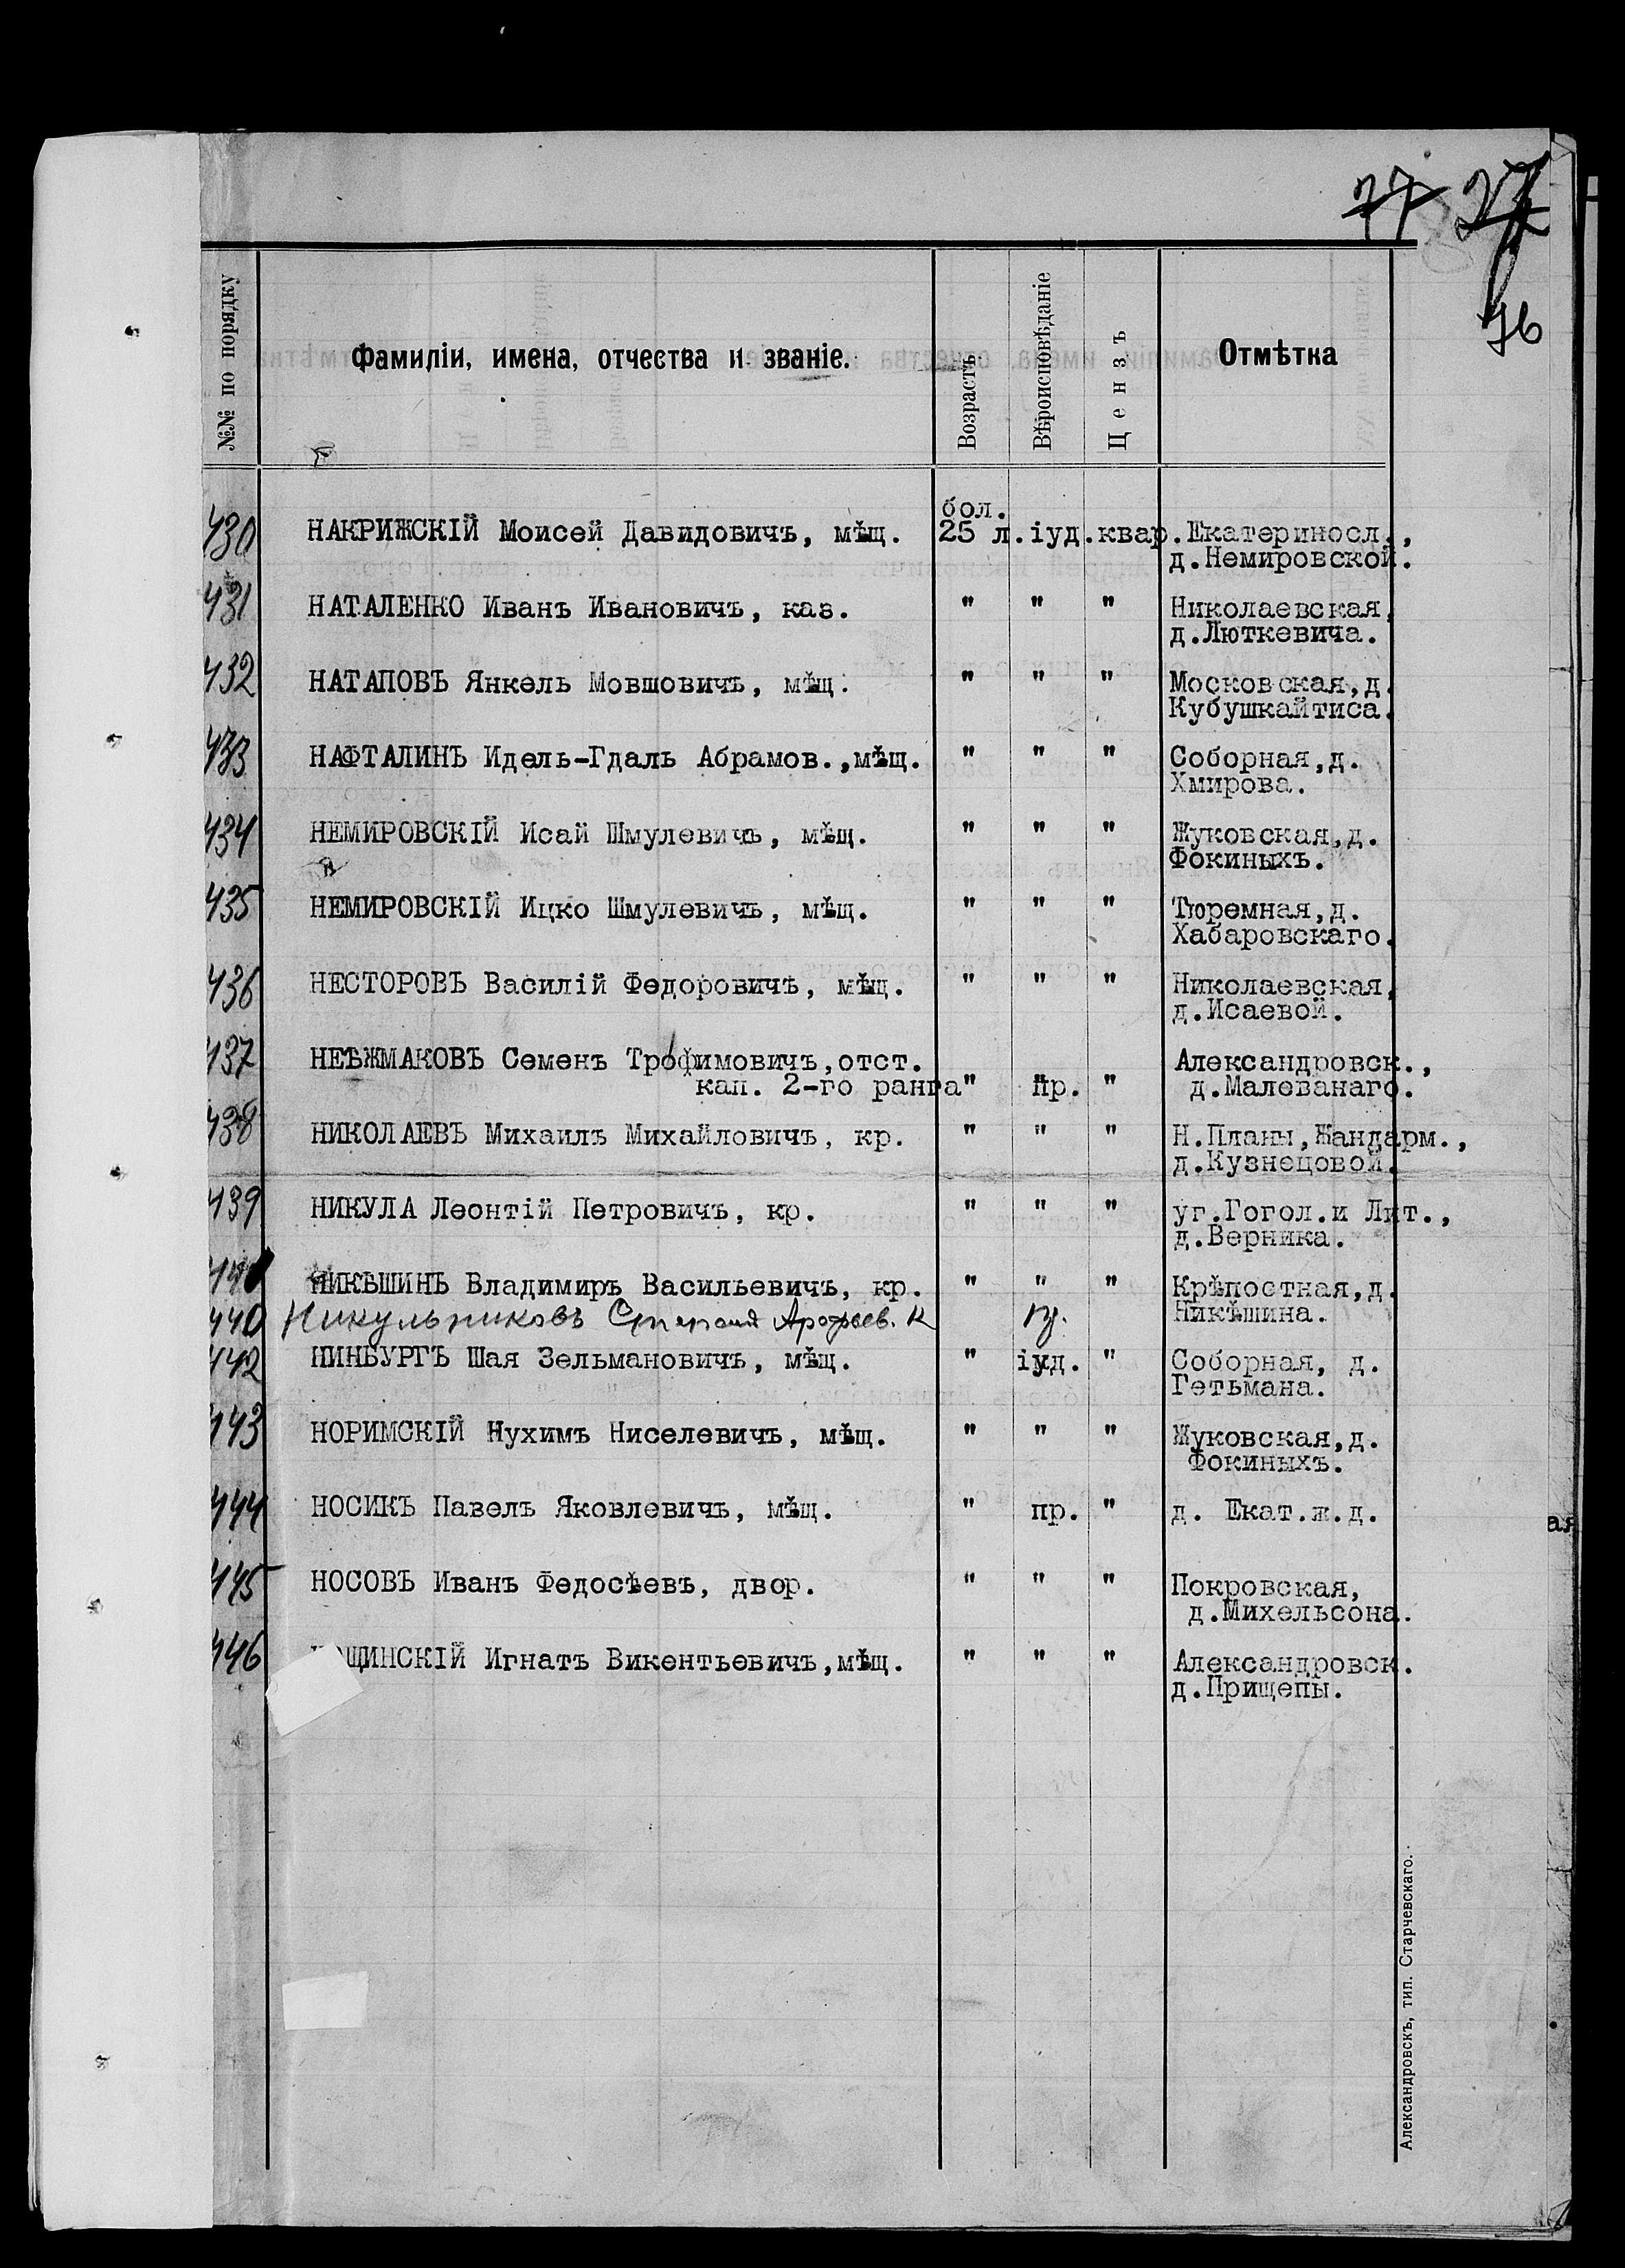 77 27
76
№№ по порядку
Фамиліи, имена, отчества и званіе.
Возрастъ
Вѣроисповѣданіе
Цензъ
Отмѣтка
бол.
430 НАКРИЖСКІЙ Моисей Давидовичъ, мѣщ. 25 л. іуд. квар. Екатериносл.,
д.Немировской.
431 НАТАЛЕНКО Иванъ Ивановичъ, каз. " " " Николаевская,
д.Люткевича.
432 НАТАПОВЪ Янкель Мовшовичъ, мѣщ. " " " Московская,д.
Кубушкайтиса.
433 НАФТАЛИНЪ Идель-Гдаль Абрамов.,мѣщ. " " " Соборная,д.
Хмирова.
434 НЕМИРОВСКІЙ Исай Шмулевичъ, мѣщ. " " " Жуковская,д.
Фокиныхъ.
435 НЕМИРОВСКІЙ Ицко Шмулевичъ, мѣщ. " " " Тюремная,д.
Хабаровскаго.
436 НЕСТОРОВЪ Василій Федоровичъ, мѣщ. " " " Николаевская,
д.Исаевой.
437 НЕѢЖМАКОВЪ Семенъ Трофимовичъ,отст. Александровск.,
кап. 2-го ранга " пр. " д.Малеванаго.
438 НИКОЛАЕВЪ Михаилъ Михайловичъ, кр. " " " Н.Планы,Жандарм.,
д.Кузнецовой.
439 НИКУЛА Леонтій Петровичъ, кр. " " " уг.Гогол.и Лит.,
д.Верника.
НИКѢШИНЪ Владимиръ Васильевичъ, кр. " " " Крѣпостная,д.
440 Никульниковъ пр. Никѣшина.
442 НИНБУРГЪ Шая Зельмановичъ, мѣщ. " іуд. " Соборная, д.
Гетьмана.
443 НОРИМСКІЙ Нухимъ Ниселевичъ, мѣщ. " " " Жуковская,д.
Фокиныхъ.
444 НОСИКЪ Павелъ Яковлевичъ, мѣщ. " пр. " д. Екат.ж.д.
445 НОСОВЪ Иванъ Федосѣевъ, двор. " " " Покровская,
д.Михельсона.
446 ЩИНСКІЙ Игнатъ Викентьевичъ,мѣщ. " " " Александровск.
д.Прищепы.
Александровскъ, тип. Старчевскаго.
ая